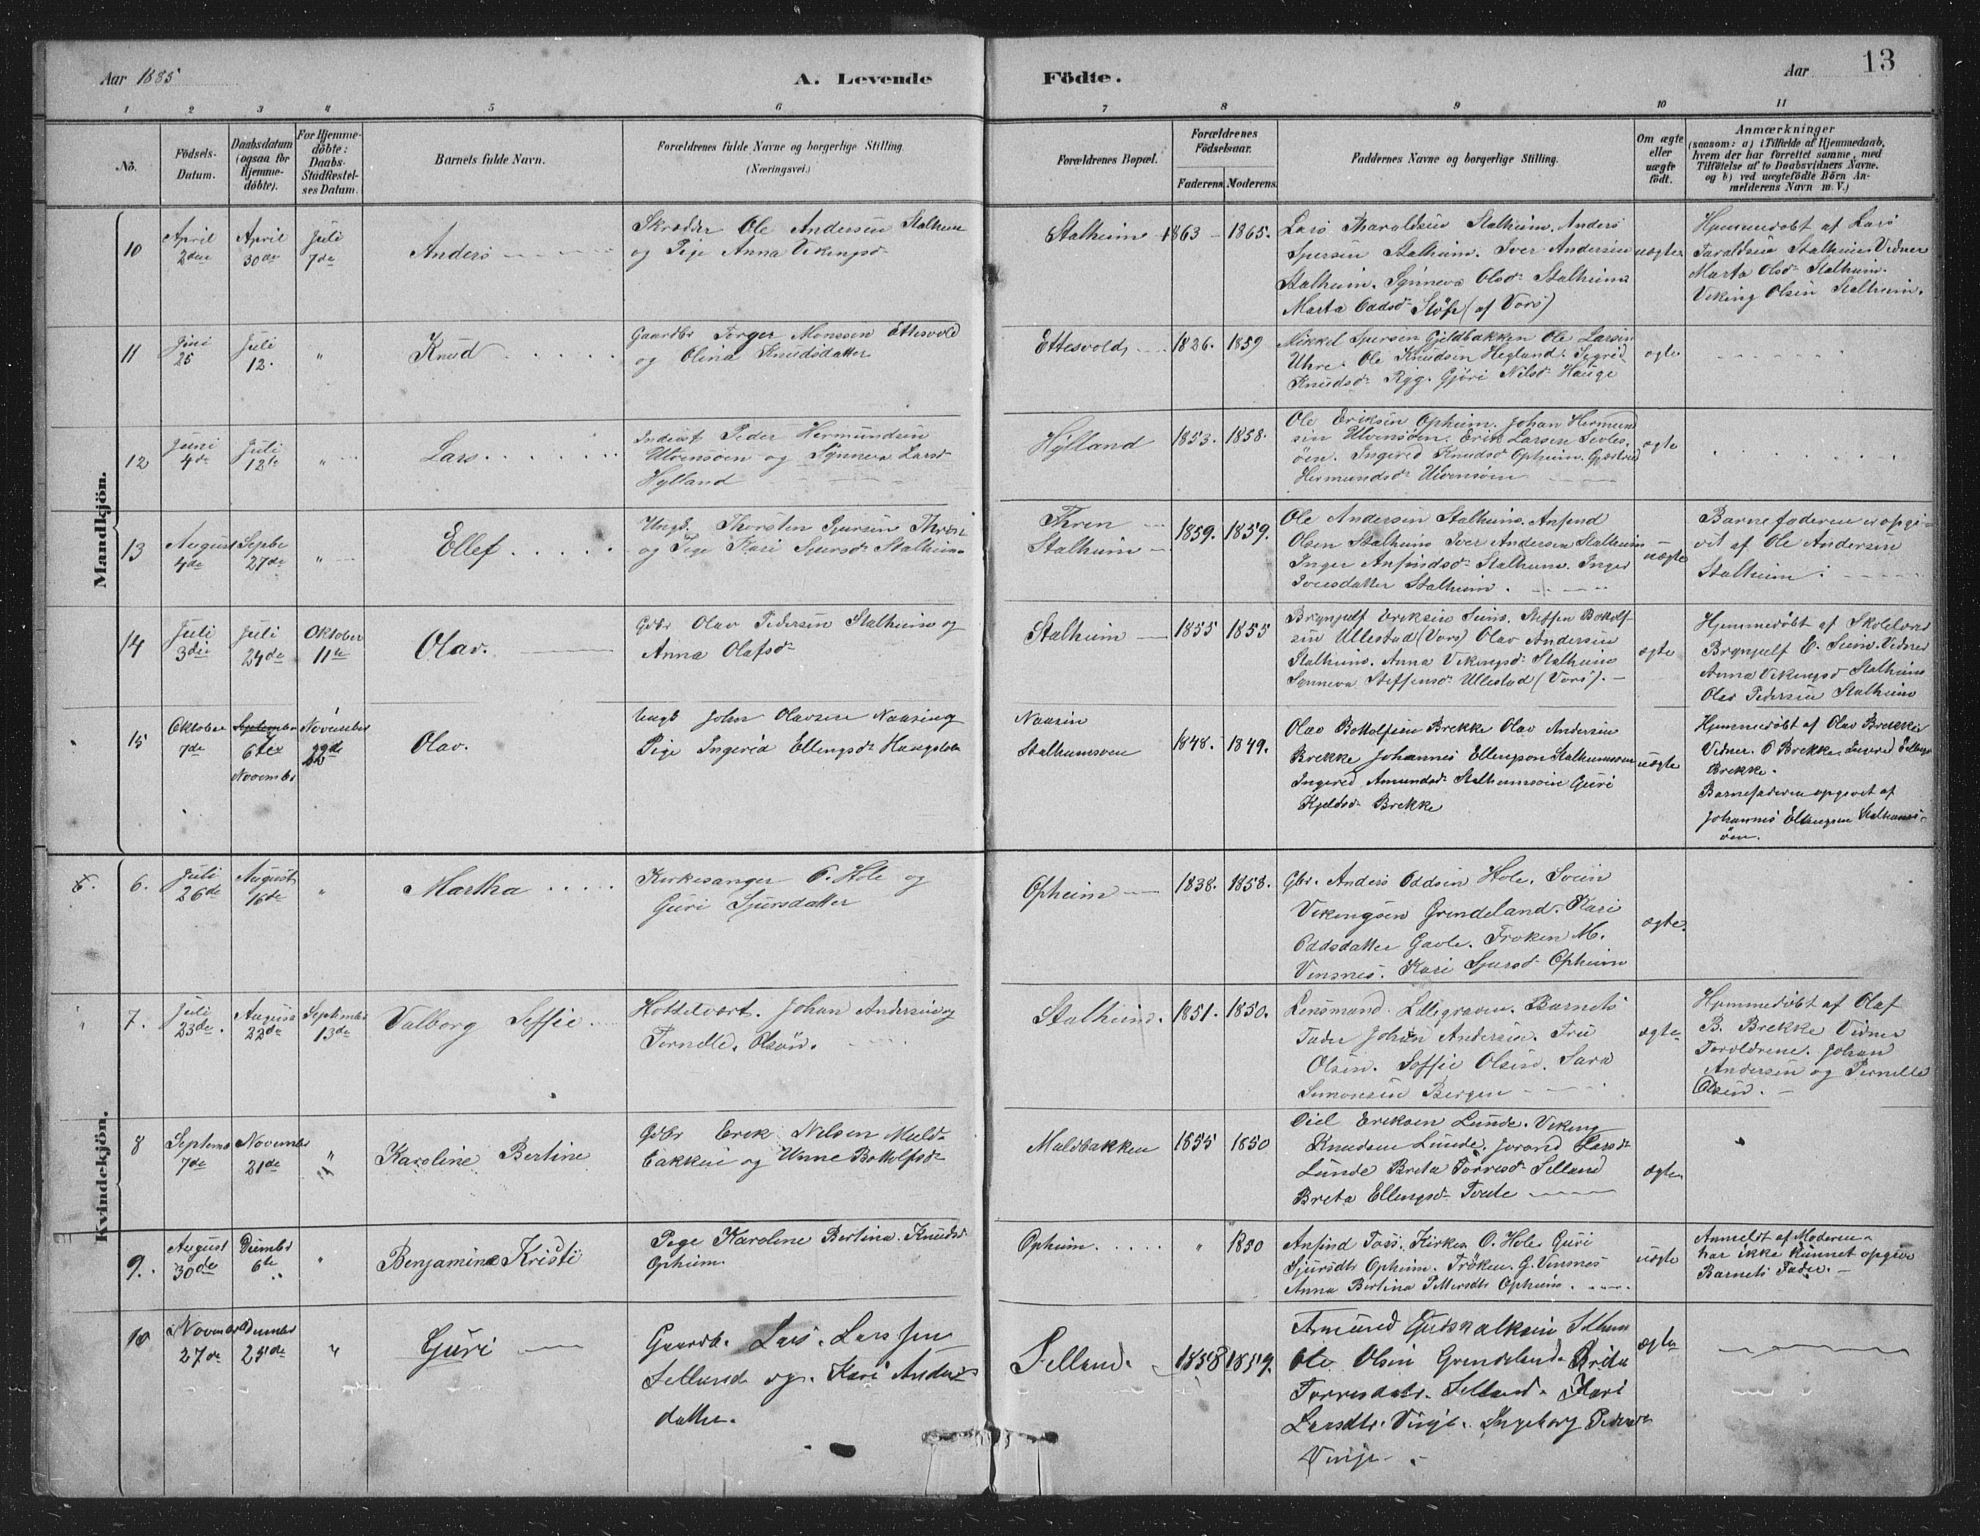 Aar 1885
A. Levende
Födte.
Aar
13
1 2 3 4 5 6 7 8 9 10 11
No.
Födsels-
Datum.
Daabsdatum
(ogsaa for
Hjemme-
döbte).
For Hjemme-
döbte:
Daabs-
Stadfæstel-
ses Datum.
Barnets fulde Navn.
Forældrenes fulde Navne og borgerlige Stilling
(Næringsvei.)
Forældrenes Bopæl.
Forældrenes
Födselsaar.
Faderens. Moderens.
Faddernes Navne og borgerlige Stilling.
Om ægte
eller
uægte
födt.
Anmærkninger
(saasom: a) i Tilfælde af Hjemmedaab,
hvem der har forrettet samme, med
Tilföielse af to Daabsvidners Navne.
og b) ved uægtefödte Börn An-
melderens Navn m. V.)
Mandkjön.
10
April
2den
April
30de
Juli
7de
Anders
Skrædder Ole Andersen Stalheim
og Pige Anna Vikingsd.
Stalheim
1863 1865.
Lars Haraldsen Stalheim. Anders
Sjursen Stalheim. Iver Andersen
Stalheim. Synneva Olsd. Stalheim
Marta Oddsd. (af Vors)
uægte
Hjemmedøbt af Lars
Taraldsen Stalheim. Vidner
Marta Olsd. Stalheim.
Viking Olsen Stalheim.
11
Juni
25
Juli
12.
"
Knud
Gaardbr Torger Monssen Ettesvold
og Olina Knudsdatter
Ettesvold
1826. 1859
Mikkel Sjursen Gjeldbakken Ole Larsen
Uhre. Ole Knudsen Hegland. Sigrid
Knudsd. Ryg. Gjöri Nilsd. Hauge
ægte
12
Juni
4de
Juli
12te
"
Lars
Inderst Peder Hermundsen
Ulvensøen og Synneva Larsd.
Hylland
Hylland
1853. 1858.
Ole Eriksen Opheim. Johan Hermund
sen Ulvensøen. Erik Larsen
øen. Ingerid Knudsd. Opheim.
Hermundsd. Ulvensøen
ægte
13
August
4de
Septbe
27de
"
Ellef
Ungk. Thorsten Sjursen Thren
og Pige Kari Sjursd. Stalheim
Thren
Stalheim
1859. 1859.
Ole Andersen Stalheim. Anfind
Olsen Stalheim Iver Andersen Stalheim
Inger Anfindsd. Stalheim. Inger
Iversdatter Stalheim.
uægte
Barnefaderen er opgi-
vet af Ole Andersen
Stalheim
14
Juli
3die
Juli
24de
Oktober
11te
Olav.
Gdbr Olav Pedersen Stalheim og
Anna Olafsd.
Stalheim
1855 1855
Brynjulf Eriksen Seim. Steffen Botolf-
sen Ullestad (Vors) Olav Andersen
Stalheim. Anna Vikingsd. Stalheim
Synneva Steffensd. Ullestad (Vors).
ægte
Hjemmedøbt af Skolelærer
Brynjulf E. Seim. Vidner
Anna Vikingsd Stalheim
Olav Pedersen Stalheim
15
Oktober
7de
September
6te
November
November
22de
Olav.
Ungk John Olavsen Naasin og
Pige Ingerid Ellingsd.
Naasin
Stalheimsøen
1848. 1849.
Olav Botolfsen Brekke Olav Andersen
Brekke Johannes Ellingson Stalheimsøen
Ingerid Amundsd. Stalheimsøien Guri
Kjeldsd. Brekke
uægte
Hjemmedøbt af Olav Brekke
Vidner. O Brekke. Ingerid
Brekke.
Barnefaderen opgivet af
Johannes Ellingsen Stalheims-
øen.
Kvindekjön.
6.
Juli
26de
August
16de
"
Martha
Kirkesanger O. Hole og
Guri Sjursdatter
Opheim
1838. 1858.
Gbr. Anders Oddsen Hole. Svein
Vikingsen Grindeland. Kari
Oddsdatter Gavle. Frøken M.
Vinsnes. Kari Sjursd. Opheim
ægte.
7.
Juli
23de
August
22de
September
13de
Valborg Seffie
Hotelvært. Johan Andersen og
Pernelle. Olsen.
Stalheim.
1851. 1850.
Lensmand. Lilligraven. Barnets
Fader Johan Andersen. Fru
Olsen. Soffie Olsen. Sara
Simonsen Bergen
ægte
Hjemmedøbt af Olaf
B. Brekke Vidner
Forældrene. Johan
Andersen og Pernelle
Olsen.
8
Septembr
7de
November
21de
"
Karoline Bertine
Gdbr Erik Nilsen Muld-
bakken og Unne Botolfsd.
Muldbakken
1855 1850
Eriksen Lunde. Viking
Knudsen Lunde. Jorand Larsd.
Lunde Breta Torresd. Selland
Breta Ellingsd. Tvete
ægte
9.
August
30de
6te
"
Benjamine Kristi
Pige Karoline Bertina. Knudsd
Opheim.
Opheim.
"
1850
Anfind Toss. Kirkes. O. Hole. Guri
Sjursdtr Opheim. Frøken. G. Vinsnes
Anna Bertina Pettersdtr Opheim.
uægte
Anmeldt af Moderen
har ikke kunnet opgive
Barnets Fader.
10
November
27de
25de
"
Guri
Gaardb. Lars. Larssen
Selland og. Kari Anders
datter.
Selland.
1858 1859.
Amund Gudsvalksen
Ole Olsen Grindeland. Brita
Torresdatr. Selland. Kari
Larsdtr. Vinje. Ingeborg
Vinje
ægte